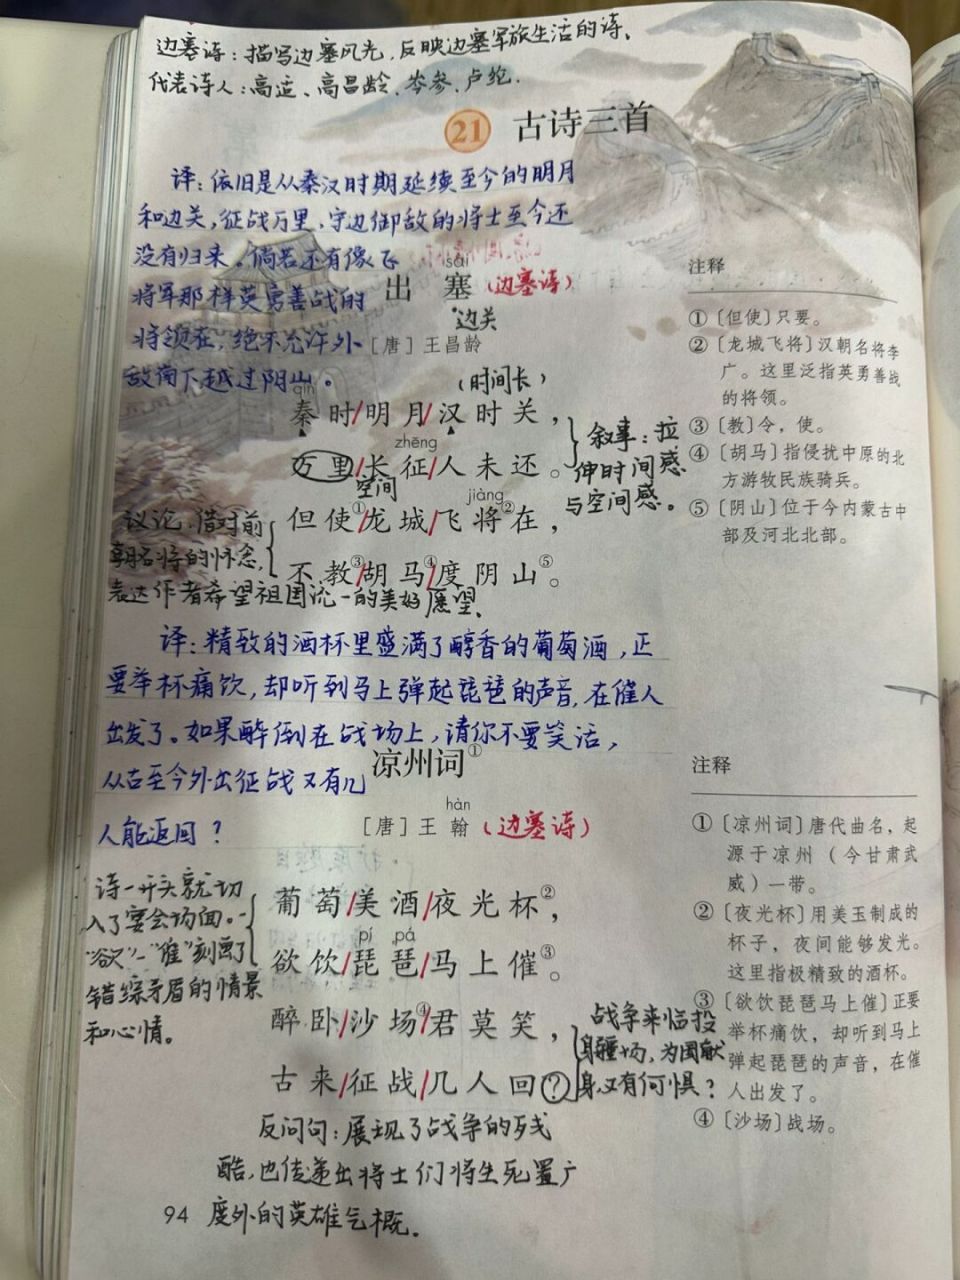 边塞诗：描写边塞风光，反映边塞军旅生活的诗、
代表诗人：高适、高昌龄、岑参、卢纶.
21 古诗三首
译：依旧是从秦汉时期延续至今的明月
和边关，征战万里、守边御敌的将士至今还
没有归来。倘若还有像飞
将军那样英勇善战的
将领在，绝不允许外
敌南下越过阴山。
sài
出塞（边塞诗）
边关
［唐］王昌龄
（时间长）
qín
秦时/明月/汉时关，
zhēng
万里/长征/人未还。
空间
叙事：拉
伸时间感
与空间感。
jiàng
但使①/龙城/飞将②在，
不教③/胡马④/度阴山⑤。
议论，借对前
朝名将的怀念，
表达作者希望祖国统一的美好愿望、
注释
①［但使］只要。
②［龙城飞将］汉朝名将李
广。这里泛指英勇善战
的将领。
③［教］令，使。
④［胡马］指侵扰中原的北
方游牧民族骑兵。
⑤［阴山］位于今内蒙古中
部及河北北部。
译：精致的酒杯里盛满了醇香的葡萄酒，正
要举杯痛饮，却听到马上弹起琵琶的声音，在催人
出发了。如果醉倒在战场上，请你不要笑话，
从古至今外出征战又有几
人能返回？
凉州词①
hàn
［唐］王翰（边塞诗）
葡萄/美酒/夜光杯②，
pí pá
欲饮/琵琶/马上催③。
诗一开头就切
入了宴会场面。一
“欲”一“催”刻画了
错综矛盾的情景
和心情。
醉卧/沙场④/君莫笑，
古来/征战/几人回？
战争来临投
身疆场，为国献
身又有何惧？
反问句：展现了战争的残
酷，也传递出将士们将生死置于
度外的英雄气概.
注释
①［凉州词］唐代曲名，起
源于凉州（今甘肃武
威）一带。
②［夜光杯］用美玉制成的
杯子，夜间能够发光。
这里指极精致的酒杯。
③［欲饮琵琶马上催］正要
举杯痛饮，却听到马上
弹起琵琶的声音，在催
人出发了。
④［沙场］战场。
94